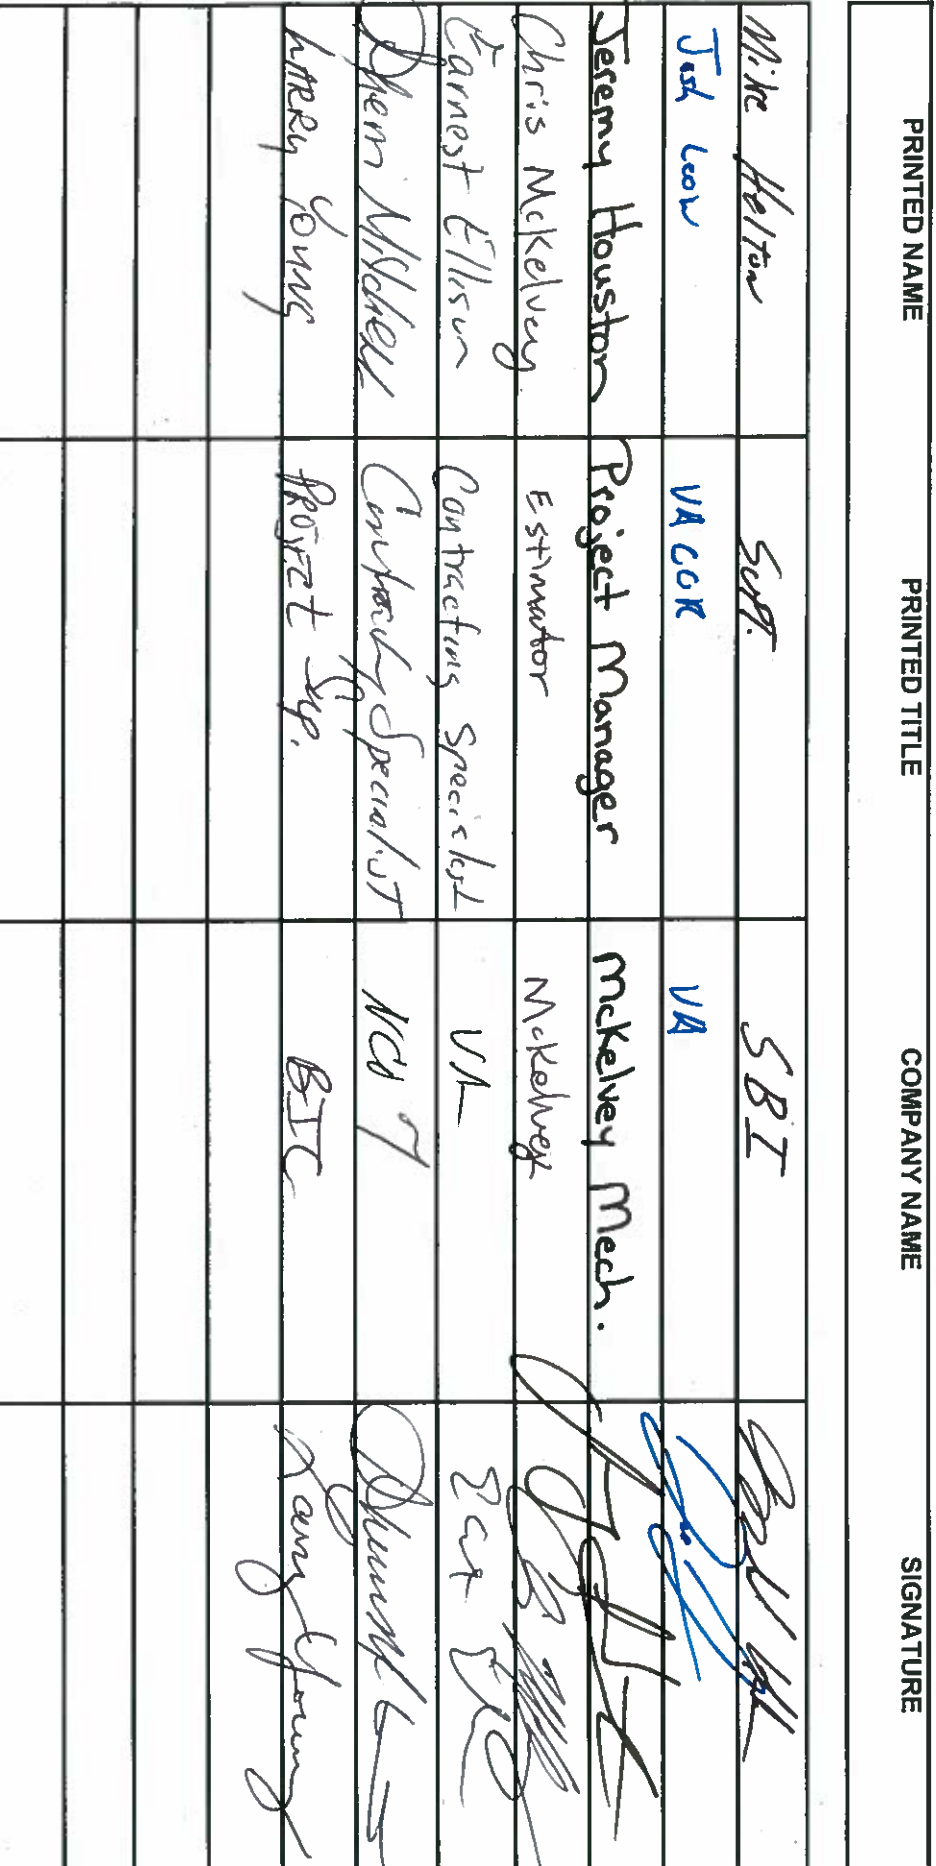 PRINTED NAME PRINTED TITLE COMPANY NAME SIGNATURE
Mike Helton Supt. SBI
Josh Leow VA COR VA
Jeremy Houston Project Manager McKelvey Mech.
Chris McKelvey Estimator McKelvey
Earnest Ellison Contracting Specialist VA
Dhern Mitchell Contracting Specialist NCO 7
LARRY YOUNG PROJECT Sup. BIC Larry Young